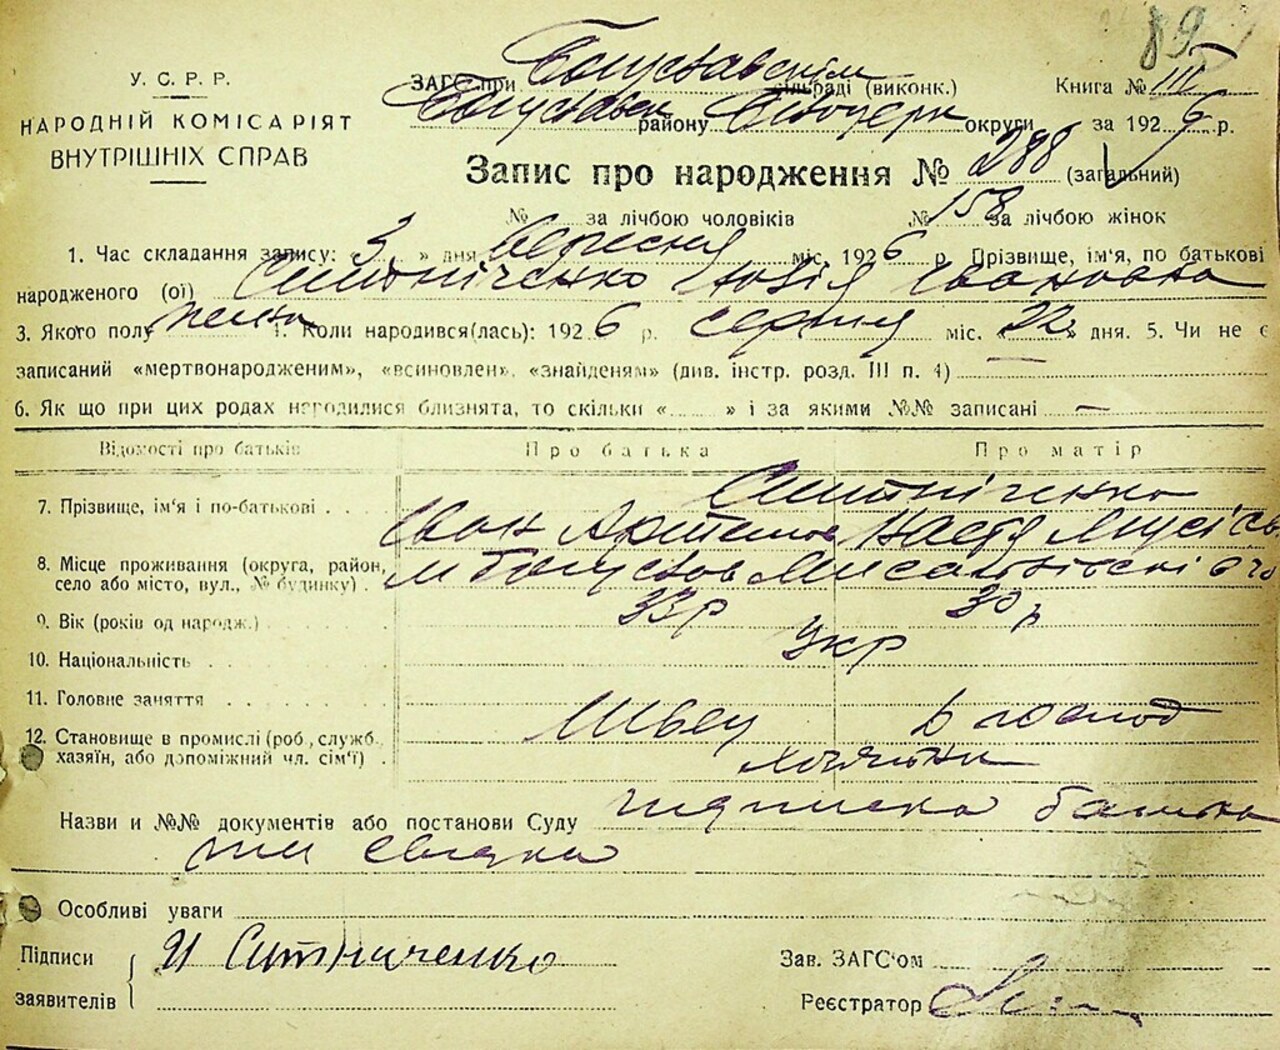 89
У. С. Р. Р.
НАРОДНІЙ КОМІСАРІЯТ
ВНУТРІШНІХ СПРАВ
ЗАГС при Богуславскім сільраді (виконк.) Книга № III
Богуславськ району Білоцерк округи за 1926 р.
Запис про народження № 288 (загальний)
№ за лічбою чоловіків № 158 за лічбою жінок
1. Час складання запису: 3 » дня вересня міс. 1926 р. Прізвище, ім'я, по батькові
народженого (ої) Ситніченко Юлія Івановна
3. Якого полу женск 4. Коли народився(лась): 1926 р. серпня міс. «22» дня. 5. Чи не є
записаний «мертвонародженим», «всиновлен», «знайденям» (див. інстр. розд. III п. 4)
6. Як що при цих родах народилися близнята, то скільки « » і за якими №№ записані —
Відомості про батьків Про батька Про матір
7. Прізвище, ім'я і по-батькові . . . Ситніченко
Іван Артемов Настя Мусієв
8. Місце проживання (округа, район, село або місто, вул., № будинку) . м Богуслав
9. Вік (років од народж.) 33 р 30 р
10. Національність Укр
11. Головне заняття Швец в господ
12. Становище в промислі (роб., служб., хазяїн, або допоміжний чл. сім'ї) . хозяїни
Назви и №№ документів або постанови Суду підписка батька
та свідки
Особливі уваги
Підписи заявителів И Ситниченко
Зав. ЗАГС'ом
Реєстратор